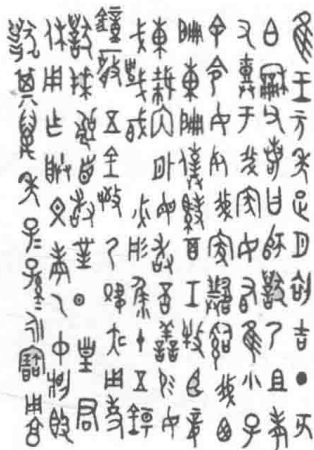 隹王元年正月初吉丁亥
白龢父若曰師𣪕乃且考
又于我家女有隹小子
余令女死我家𤔲我西
扁東扁僕馭百工牧臣妾
東栽內外毋敢否善易女
戈琱彤十五錞
鐘一五金敬乃夙夜用事
𣪕拜稽首敢對揚皇君
休用乍朕文考乙中簋
𣪕其萬年子子孫孫永寶用享